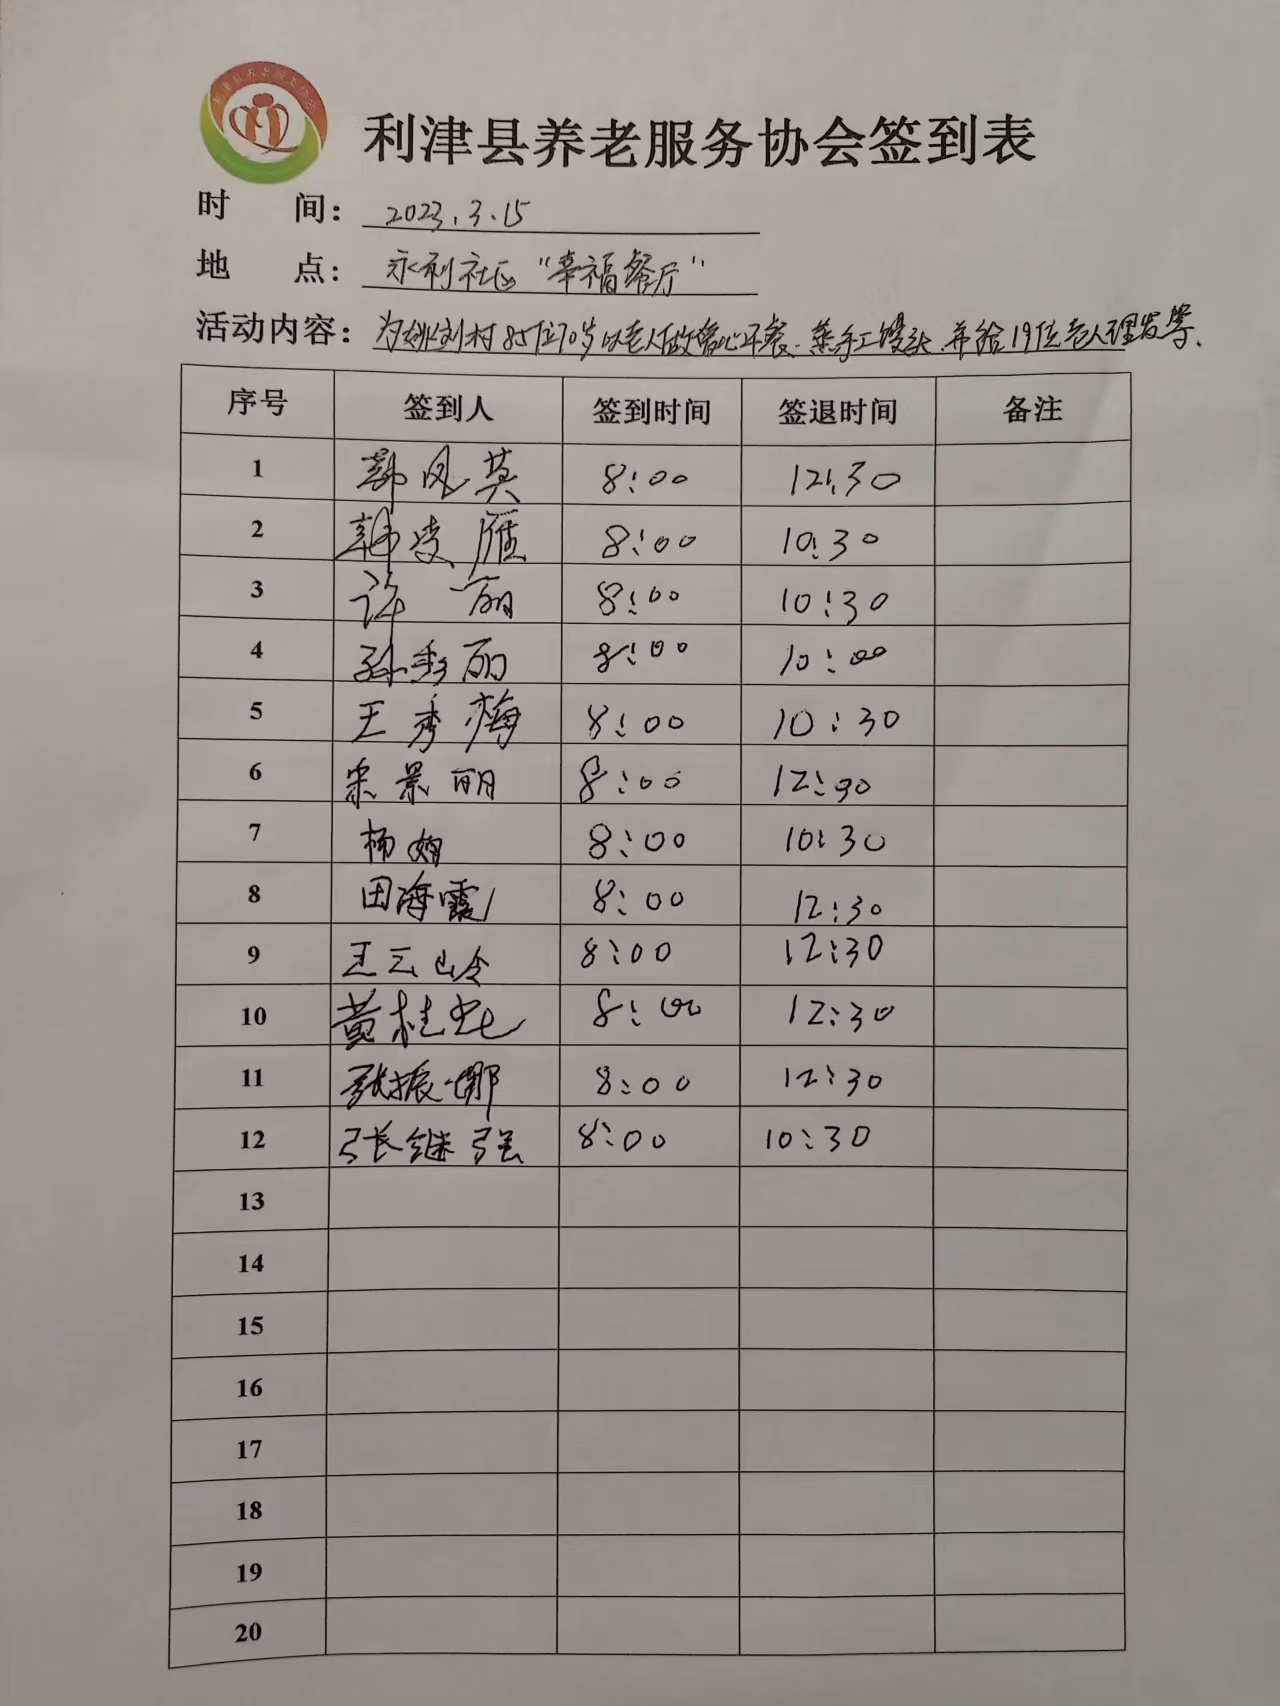 利津县养老服务协会签到表
时 间： 2023.3.15
地 点： 永利社区"幸福餐厅"
活动内容：为姚刘村85位70岁以老人做爱心午餐.蒸手工馒头.并给19位老人理发等.
序号 签到人 签到时间 签退时间 备注
1 韩风英 8:00 12:30
2 韩凌雁 8:00 10:30
3 许丽 8:00 10:30
4 孙秀丽 8:00 10:00
5 王秀梅 8:00 10:30
6 景丽 8:00 12:30
7 杨娟 8:00 10:30
8 田海霞 8:00 12:30
9 王云岭 8:00 12:30
10 黄桂 8:00 12:30
11 张振娜 8:00 12:30
12 张继强 8:00 10:30
13
14
15
16
17
18
19
20